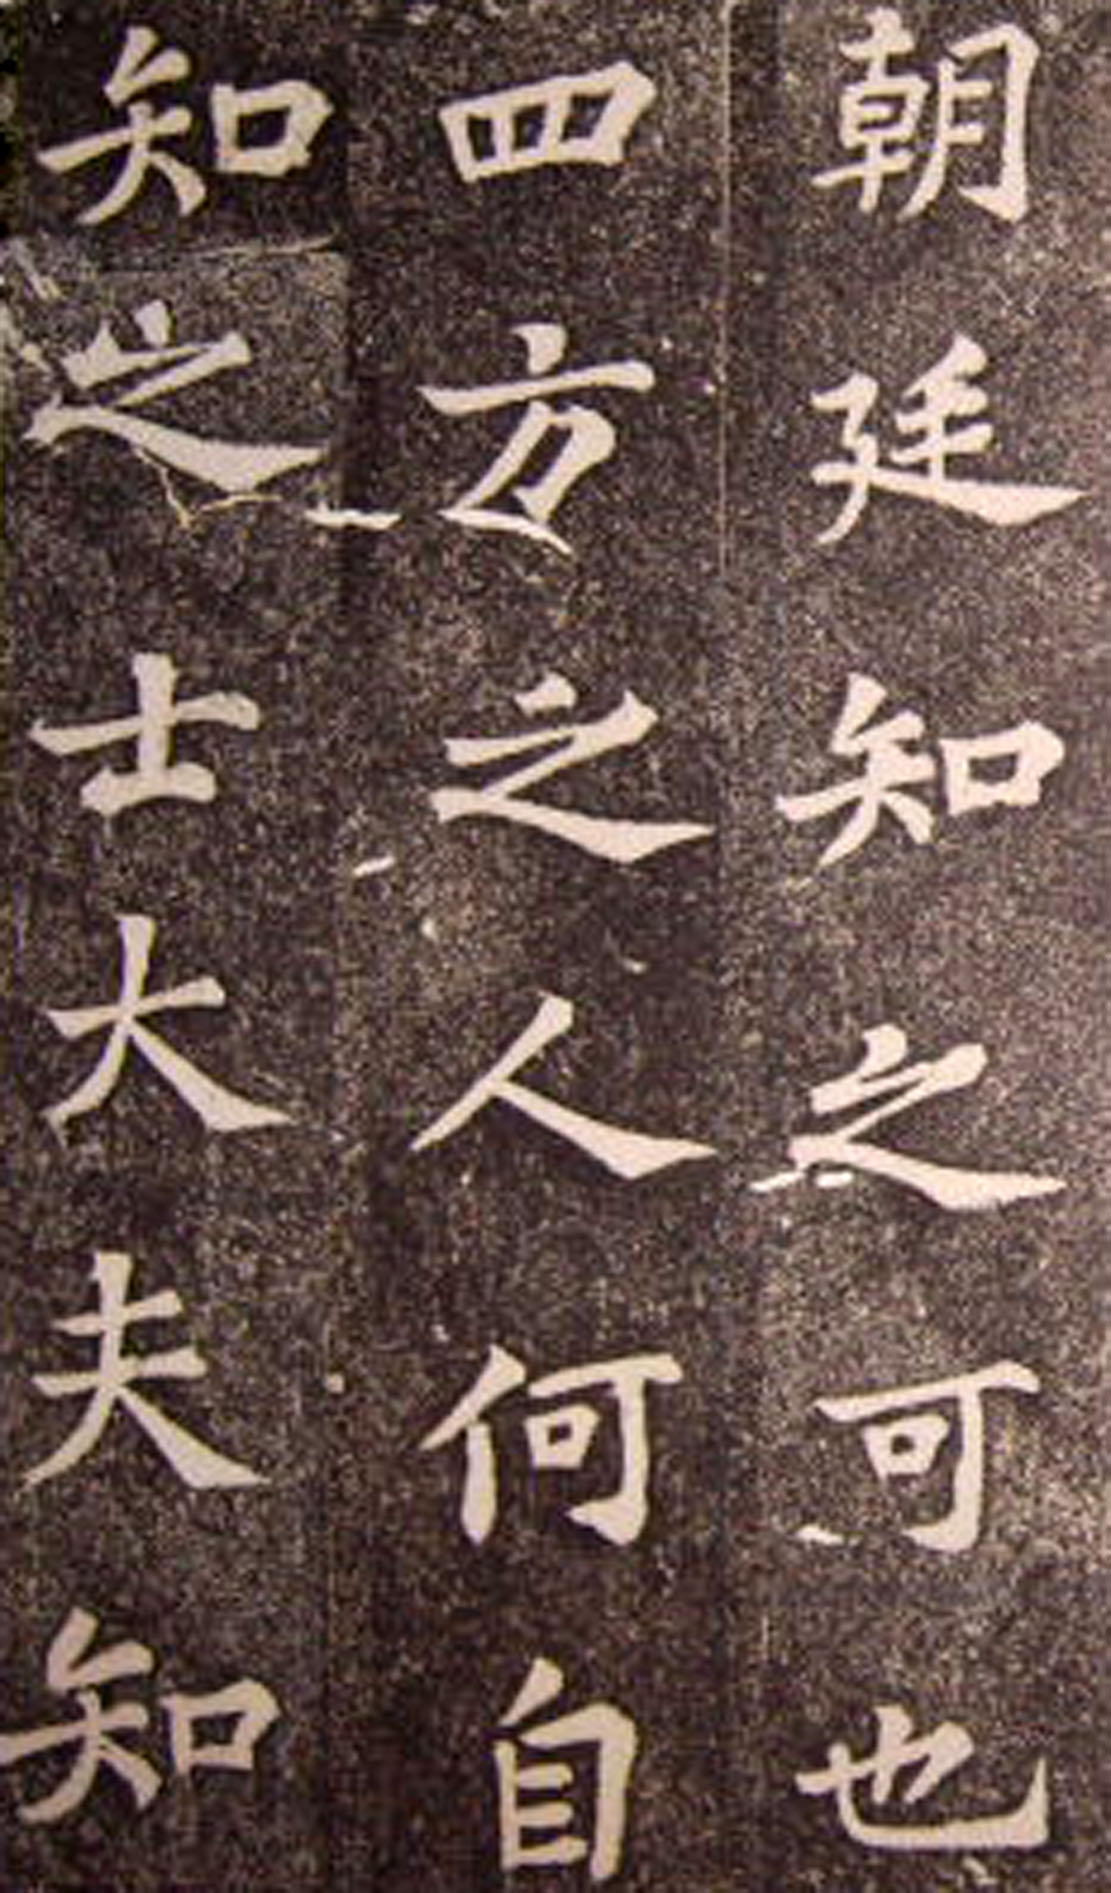 朝廷知之可也
四方之人何自
知之士大夫知